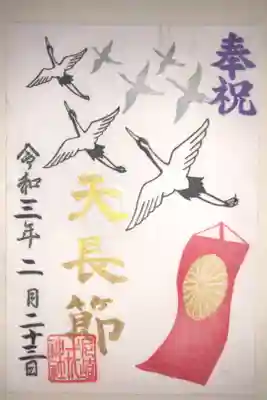 奉祝
天長節
令和三年二月二十三日